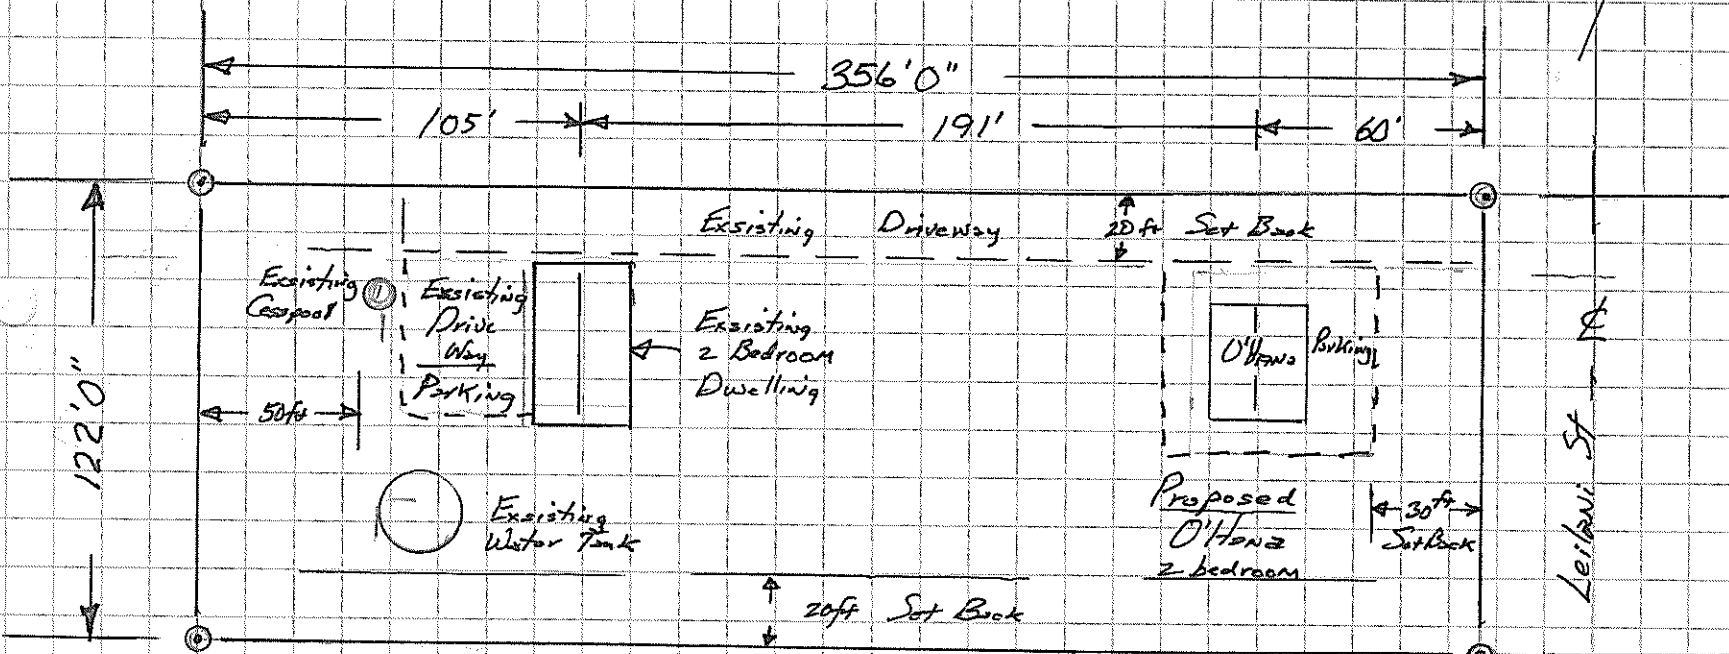 356'0"
105' 191' 60'
Exsisting Driveway
20 ft Set Back
Exsisting
Cesspool
Exsisting
Drive
Way
Parking
Exsisting
2 Bedroom
Dwelling
O'Hana
Parking
122'0"
50ft
Exsisting
Water Tank
Proposed
O'Hana
2 bedroom
30ft
Set Back
20ft Set Back
Leilani St